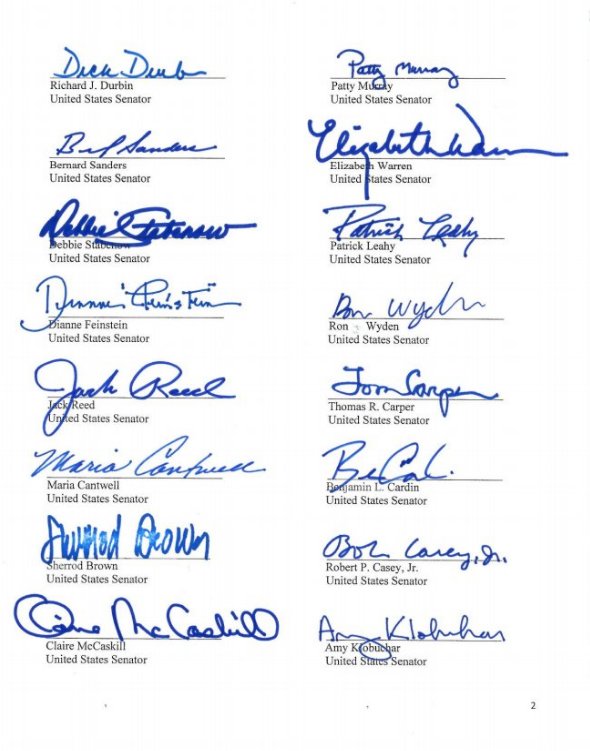 Dick Durbin
Richard J. Durbin
United States Senator
Patty Murray
Patty Murray
United States Senator
Bernard Sanders
United States Senator
Elizabeth Warren
Elizabeth Warren
United States Senator
Debbie Stabenow
Debbie Stabenow
United States Senator
Patrick Leahy
Patrick Leahy
United States Senator
Dianne Feinstein
Dianne Feinstein
United States Senator
Ron Wyden
Ron Wyden
United States Senator
Jack Reed
Jack Reed
United States Senator
Tom Carper
Thomas R. Carper
United States Senator
Maria Cantwell
Maria Cantwell
United States Senator
Benjamin L. Cardin
United States Senator
Sherrod Brown
Sherrod Brown
United States Senator
Bob Casey, Jr.
Robert P. Casey, Jr.
United States Senator
Claire McCaskill
Claire McCaskill
United States Senator
Amy Klobuchar
Amy Klobuchar
United States Senator
2